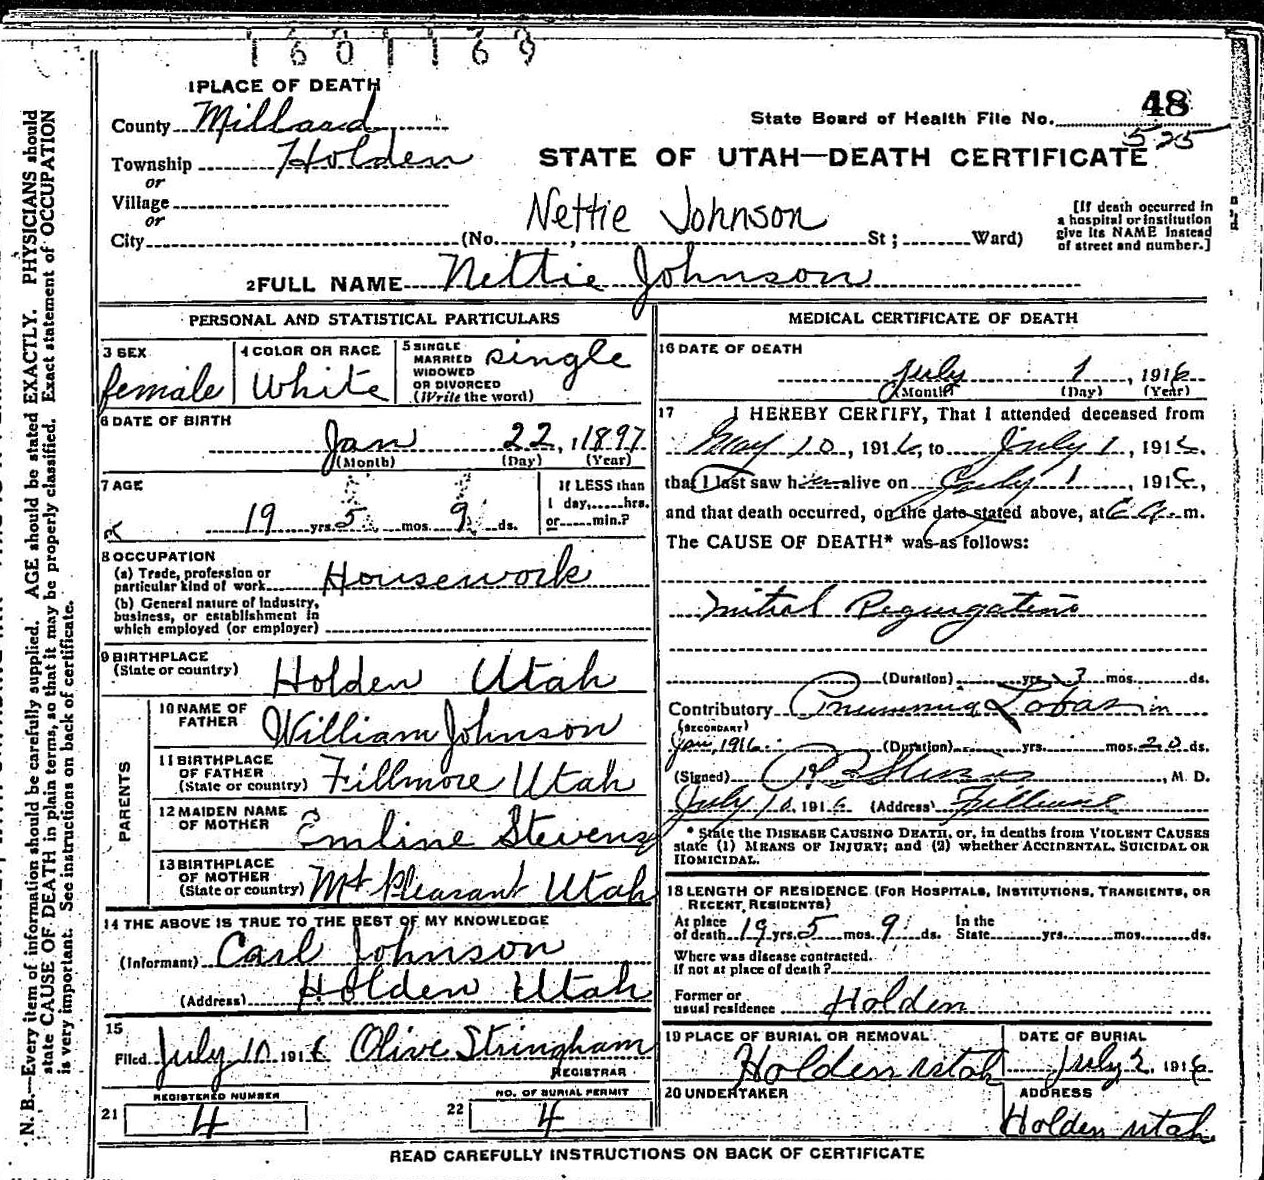 1601169
1 PLACE OF DEATH
County Millard
State Board of Health File No. 48
525
Township Holden
STATE OF UTAH—DEATH CERTIFICATE
or
Village
or
Nettie Johnson
City (No. , St ; Ward)
[If death occurred in
a hospital or institution
give its NAME instead
of street and number.]
2 FULL NAME Nettie Johnson
PERSONAL AND STATISTICAL PARTICULARS
3 SEX
female
4 COLOR OR RACE
White
5 SINGLE
MARRIED
WIDOWED
OR DIVORCED
(Write the word)
single
6 DATE OF BIRTH
Jan 22, 1897
(Month) (Day) (Year)
7 AGE
19 yrs. 5 mos. 9 ds.
If LESS than
1 day, hrs.
or min.?
8 OCCUPATION
(a) Trade, profession or
particular kind of work Housework
(b) General nature of industry,
business, or establishment in
which employed (or employer)
9 BIRTHPLACE
(State or country) Holden Utah
PARENTS
10 NAME OF
FATHER William Johnson
11 BIRTHPLACE
OF FATHER
(State or country) Fillmore Utah
12 MAIDEN NAME
OF MOTHER Emline Stevens
13 BIRTHPLACE
OF MOTHER
(State or country) Mt Pleasant Utah
14 THE ABOVE IS TRUE TO THE BEST OF MY KNOWLEDGE
(Informant) Carl Johnson
(Address) Holden Utah
15
Filed July 10 1916 Olive Stringham
REGISTRAR
REGISTERED NUMBER
21 4
NO. OF BURIAL PERMIT
22 4
MEDICAL CERTIFICATE OF DEATH
16 DATE OF DEATH
July 1, 1916
(Month) (Day) (Year)
17 I HEREBY CERTIFY, That I attended deceased from
May 10, 1916, to July 1, 1916.
that I last saw her alive on July 1, 1916,
and that death occurred, on the date stated above, at 6 a. m.
The CAUSE OF DEATH* was as follows:
Mitral Regurgitation
(Duration) yrs. mos. ds.
Contributory Pneumonia Lobar in
(SECONDARY)
Jan, 1916. (Duration) yrs. mos. 20 ds.
(Signed) , M. D.
July 10, 1916 (Address) Fillmore
* State the DISEASE CAUSING DEATH, or, in deaths from VIOLENT CAUSES
state (1) MEANS OF INJURY; and (2) whether ACCIDENTAL, SUICIDAL OR
HOMICIDAL.
18 LENGTH OF RESIDENCE (FOR HOSPITALS, INSTITUTIONS, TRANSIENTS, OR
RECENT RESIDENTS)
At place
of death 19 yrs. 5 mos. 9 ds. In the
State yrs. mos. ds.
Where was disease contracted.
If not at place of death?
Former or
usual residence Holden
19 PLACE OF BURIAL OR REMOVAL
Holden utah
DATE OF BURIAL
July 2, 1916
20 UNDERTAKER
ADDRESS
Holden utah
READ CAREFULLY INSTRUCTIONS ON BACK OF CERTIFICATE
N. B.—Every item of information should be carefully supplied. AGE should be stated EXACTLY. PHYSICIANS should
state CAUSE OF DEATH in plain terms, so that it may be properly classified. Exact statement of OCCUPATION
is very important. See instructions on back of certificate.